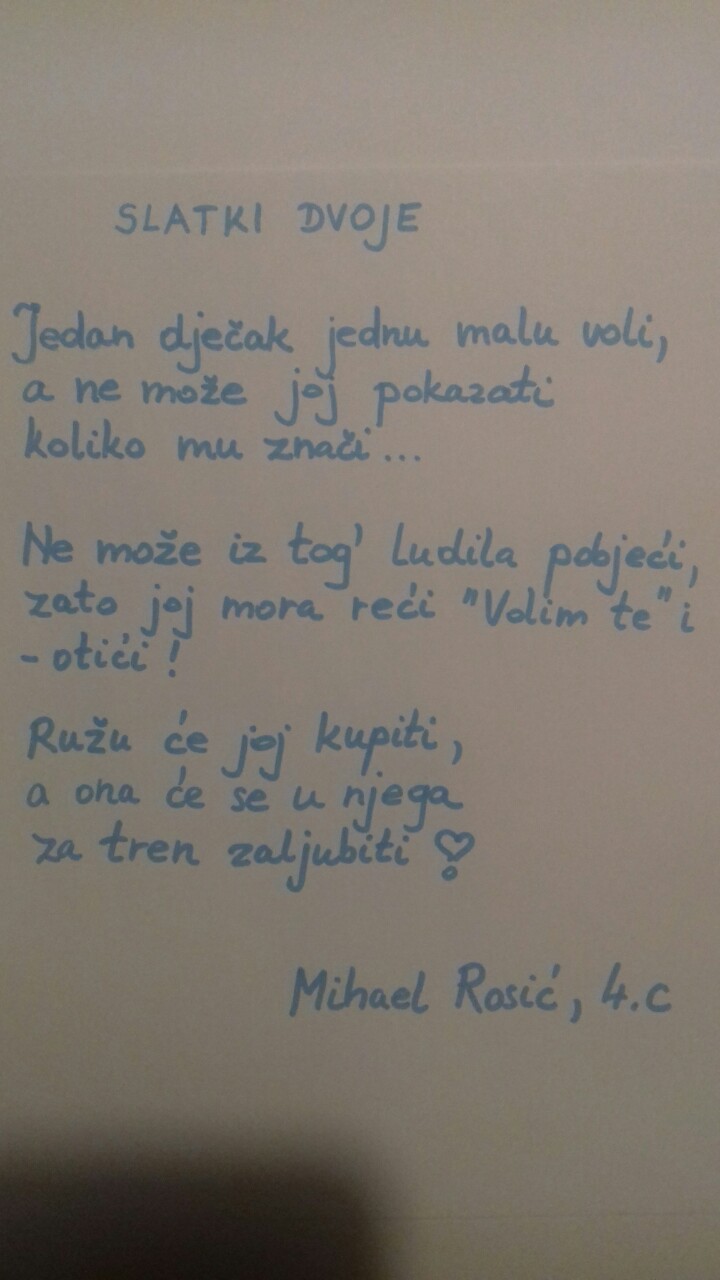 SLATKI DVOJE
Jedan dječak jednu malu voli,
a ne može joj pokazati
koliko mu znači...
Ne može iz tog' ludila pobjeći,
zato joj mora reći "Volim te" i
- otići!
Ružu će joj kupiti,
a ona će se u njega
za tren zaljubiti
Mihael Rosić, 4.c